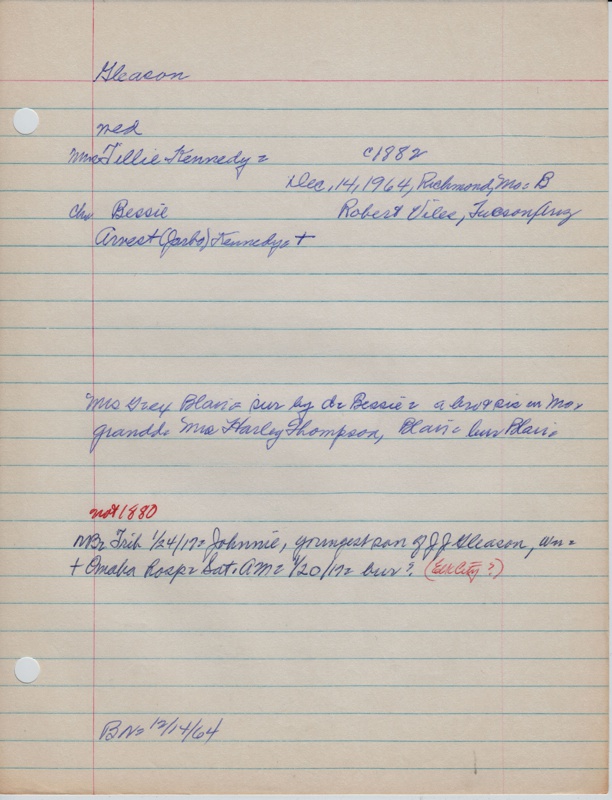 Gleason
wed
Mrs Tillie Kennedy = c1882
Dec, 14, 1964, Richmond, Mo = B
Ch = Bessie Robert Viles, Tucson Ariz
Arvest (Jarbo) Kennedy = +
Mrs Grex Blair = sur by d = Bessie = a bro & sis in Mo,
grandd = Mrs Harley Thompson, Blair = bur Blair =
not 1880
Trib 1/24/17 = Johnnie, youngest son of J J Gleason, wn =
+ Omaha Hosp = Sat. AM = 1/20/17 = bur? (Elk City?)
BN = 12/14/64